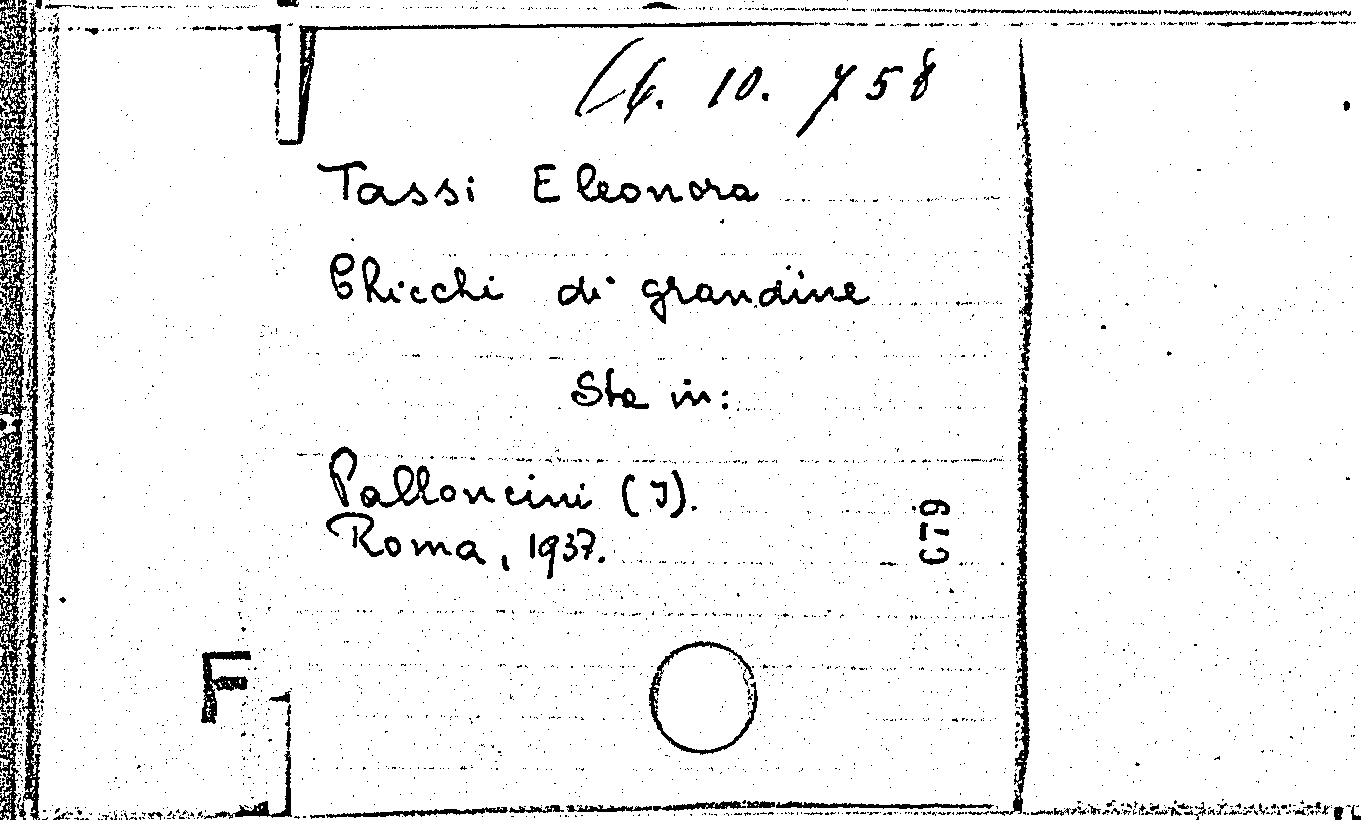 10. 758
Tassi Eleonora
Chicchi di grandine
Sta in:
Palloncini (I).
Roma, 1937.
C79
F